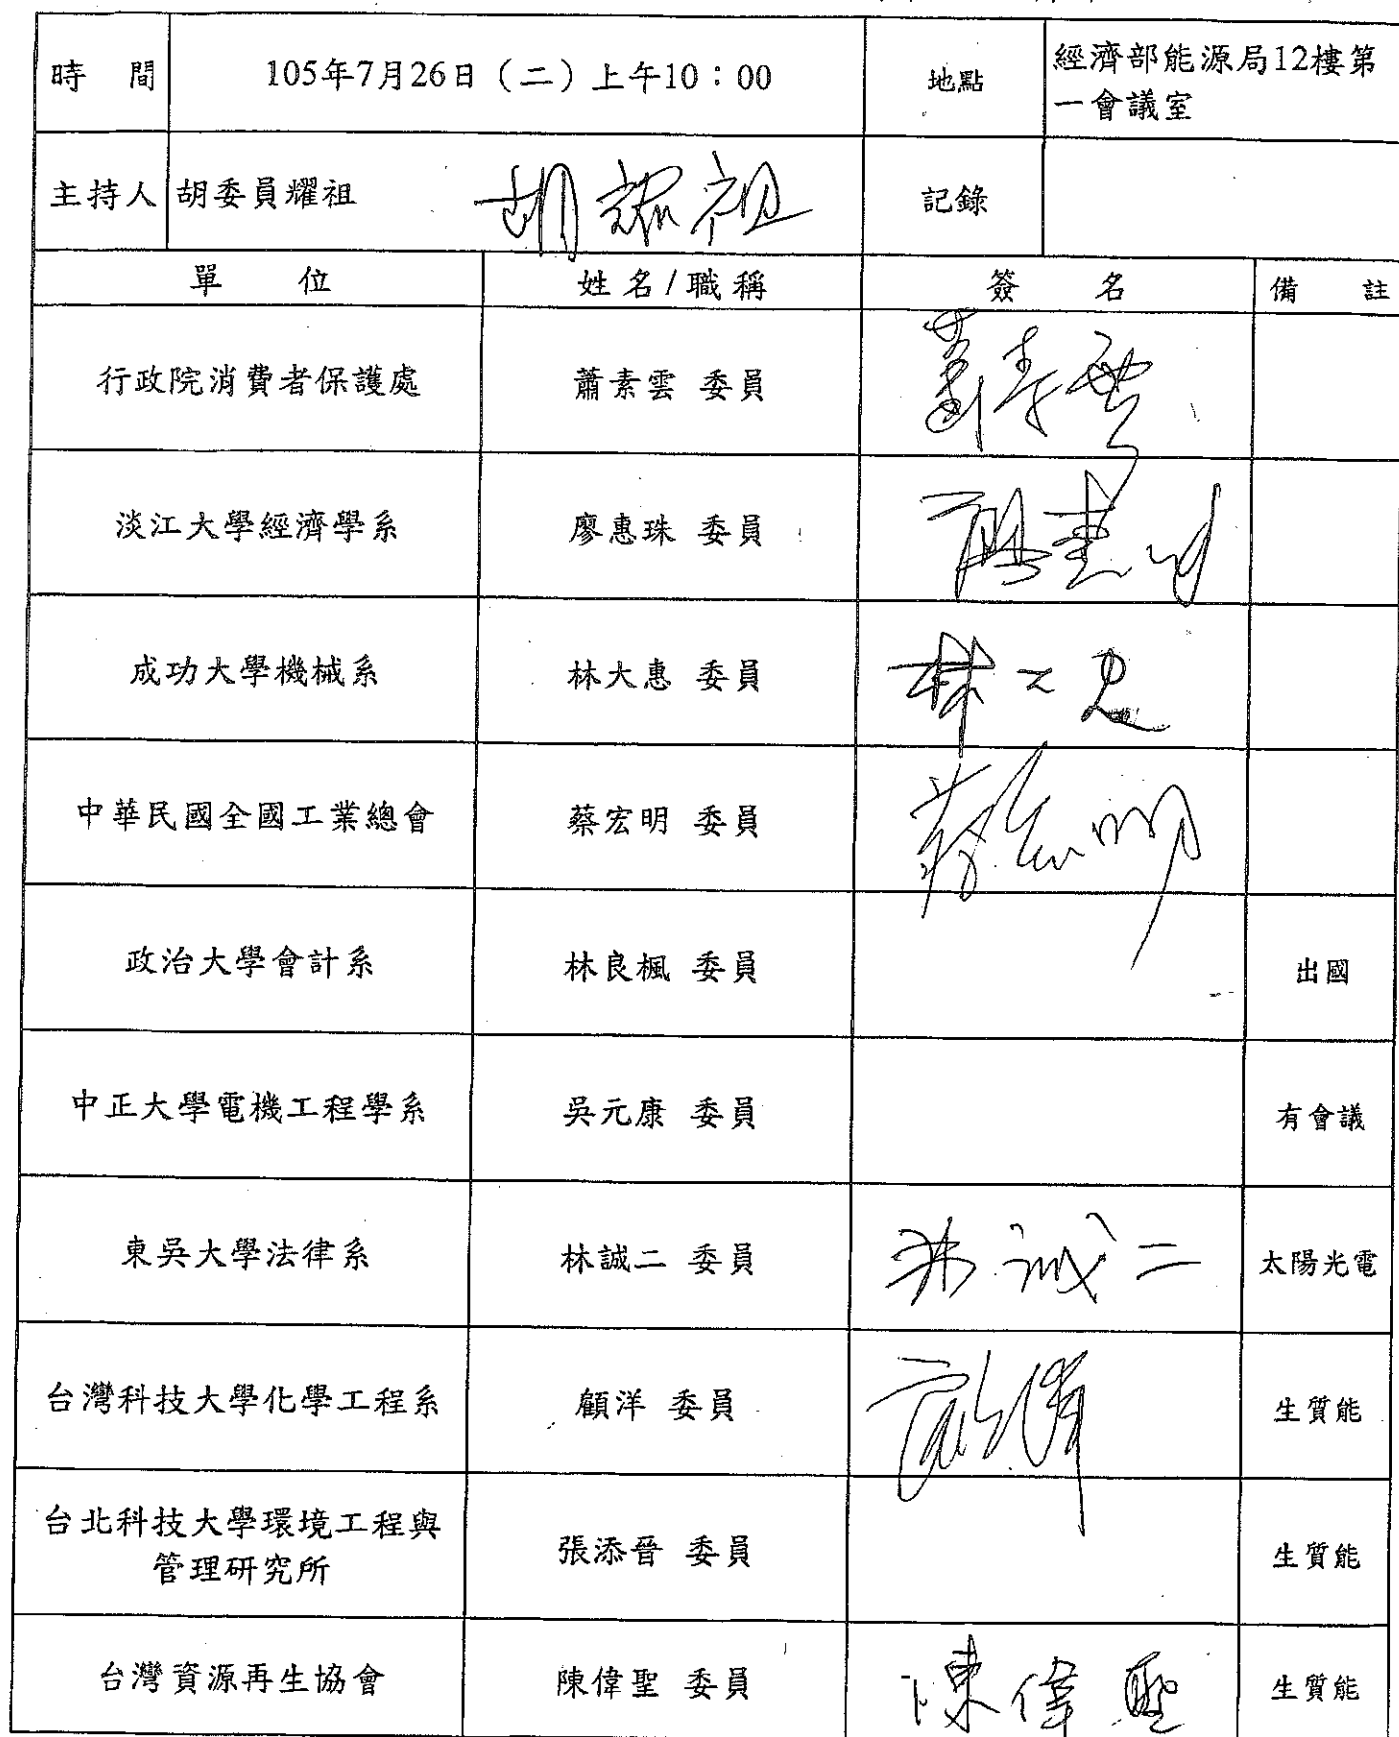 時 間 105年7月26日（二）上午10：00 地點 經濟部能源局12樓第
一會議室
主持人 胡委員耀祖 胡耀祖 記錄
單 位 姓名/職稱 簽 名 備 註
行政院消費者保護處 蕭素雲 委員 蕭素雲
淡江大學經濟學系 廖惠珠 委員 廖惠珠
成功大學機械系 林大惠 委員 林大惠
中華民國全國工業總會 蔡宏明 委員 蔡宏明
政治大學會計系 林良楓 委員 出國
中正大學電機工程學系 吳元康 委員 有會議
東吳大學法律系 林誠二 委員 林誠二 太陽光電
台灣科技大學化學工程系 顧洋 委員 生質能
台北科技大學環境工程與
管理研究所 張添晉 委員 生質能
台灣資源再生協會 陳偉聖 委員 陳偉聖 生質能